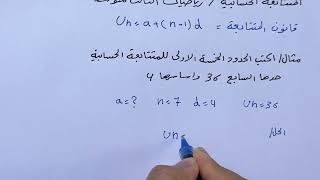 المتتابعة الحسابية / رياضيات الثالث متوسط
قانون المتتابعة = Un = a + (n-1) d
مثال / اكتب الحدود الخمسة الاولى للمتتابعة الحسابية
حدها السابع 36 واساسها 4
a = ? n = 7 d = 4 Un = 36
الحل /
Un =